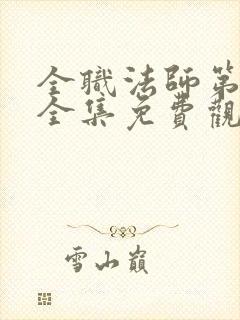 全職法師第
全集免費觀
雪山巔